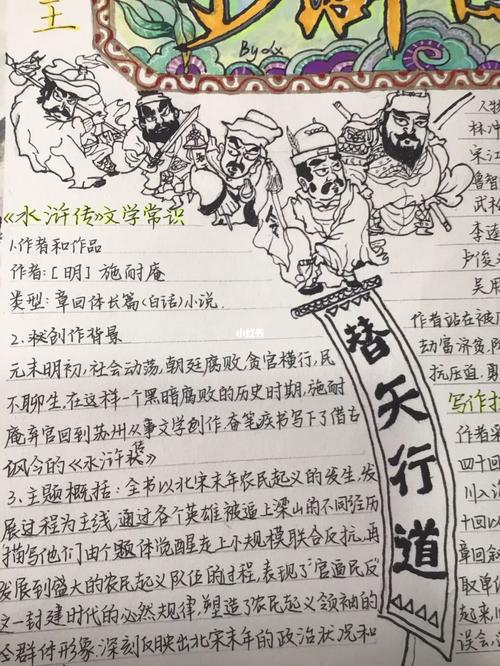 王
By dx
《水浒传》文学常识
1.作者和作品
作者:[明]施耐庵
类型:章回体长篇(白话)小说
2.创作背景
元末明初,社会动荡,朝廷腐败,贪官横行,民
不聊生,在这样一个黑暗腐败的历史时期,施耐
庵弃官回到苏州从事文学创作,奋笔疾书写下了借古
讽今的《水浒传》
3.主题概括:全书以北宋末年农民起义的发生、发
展过程为主线,通过各个英雄被逼上梁山的不同经历
描写他们由个体觉醒走上小规模联合反抗,再
发展到盛大的农民起义队伍的过程,表现了"官逼民反
这一封建时代的必然规律,塑造了农民起义领袖的
全群体形象,深刻反映出北宋末年的政治状况和
小红书
替天行道
人物
林冲
宋江
鲁智
武松
李逵
卢俊义
吴用
作者站在被
劫富济贫,除
抗压迫,勇
写作
作者采
四十回
川入
十回以
章回叙
取单
起来,
误会,